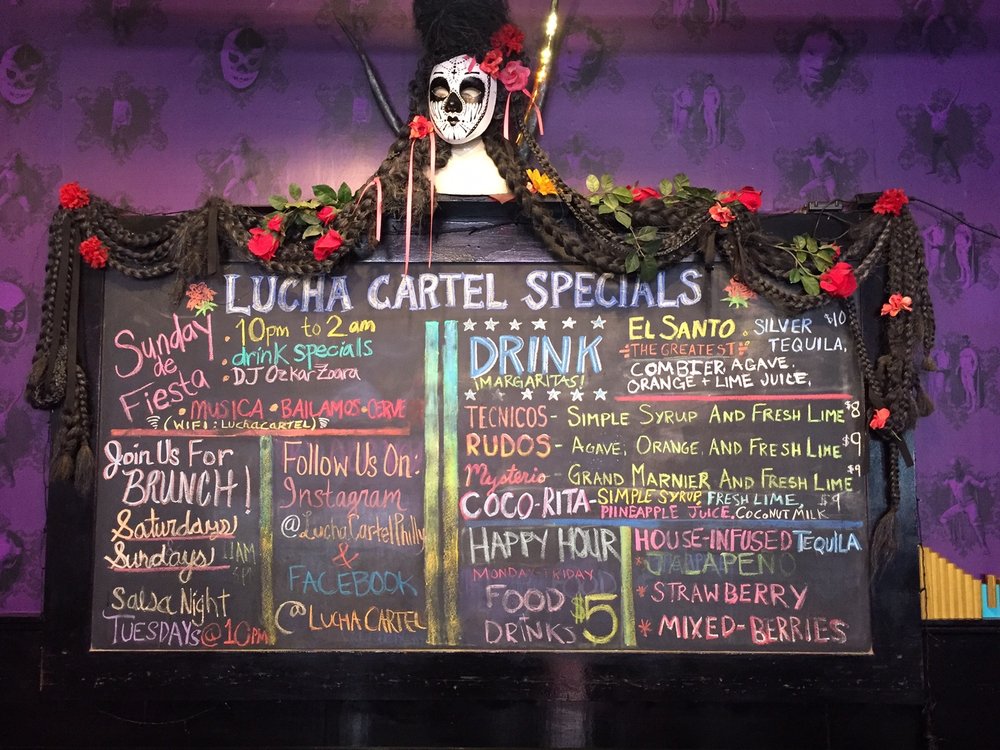 LUCHA CARTEL SPECIALS
Sunday
de
Fiesta
• 10pm to 2am
• drink specials
• DJ OzkarZoara
• MUSICA • BAILAMOS • CERVE
(WIFI: LUCHACARTEL)
Join Us For
BRUNCH!
Saturdays/
Sundays/
Salsa Night
TUESDAYS @ 10pm
Follow Us On:
Instagram
@LuchaCartelPhilly
&
FACEBOOK
@LUCHA CARTEL
DRINK
¡MARGARITAS!
EL SANTO • SILVER $10
TEQUILA,
"THE GREATEST"
COMBIER, AGAVE,
ORANGE + LIME JUICE,
TECNICOS - SIMPLE SYRUP AND FRESH LIME $8
RUDOS - AGAVE, ORANGE, AND FRESH LIME $9
Mysterio - GRAND MARNIER AND FRESH LIME $9
COCO-RITA - SIMPLE SYRUP, FRESH LIME, $9
PIINEAPPLE JUICE, COCONUT MILK
HAPPY HOUR
MONDAY-FRIDAY
FOOD
+
DRINKS $5
HOUSE-INFUSED TEQUILA
* JALAPENO
* STRAWBERRY
* MIXED-BERRIES